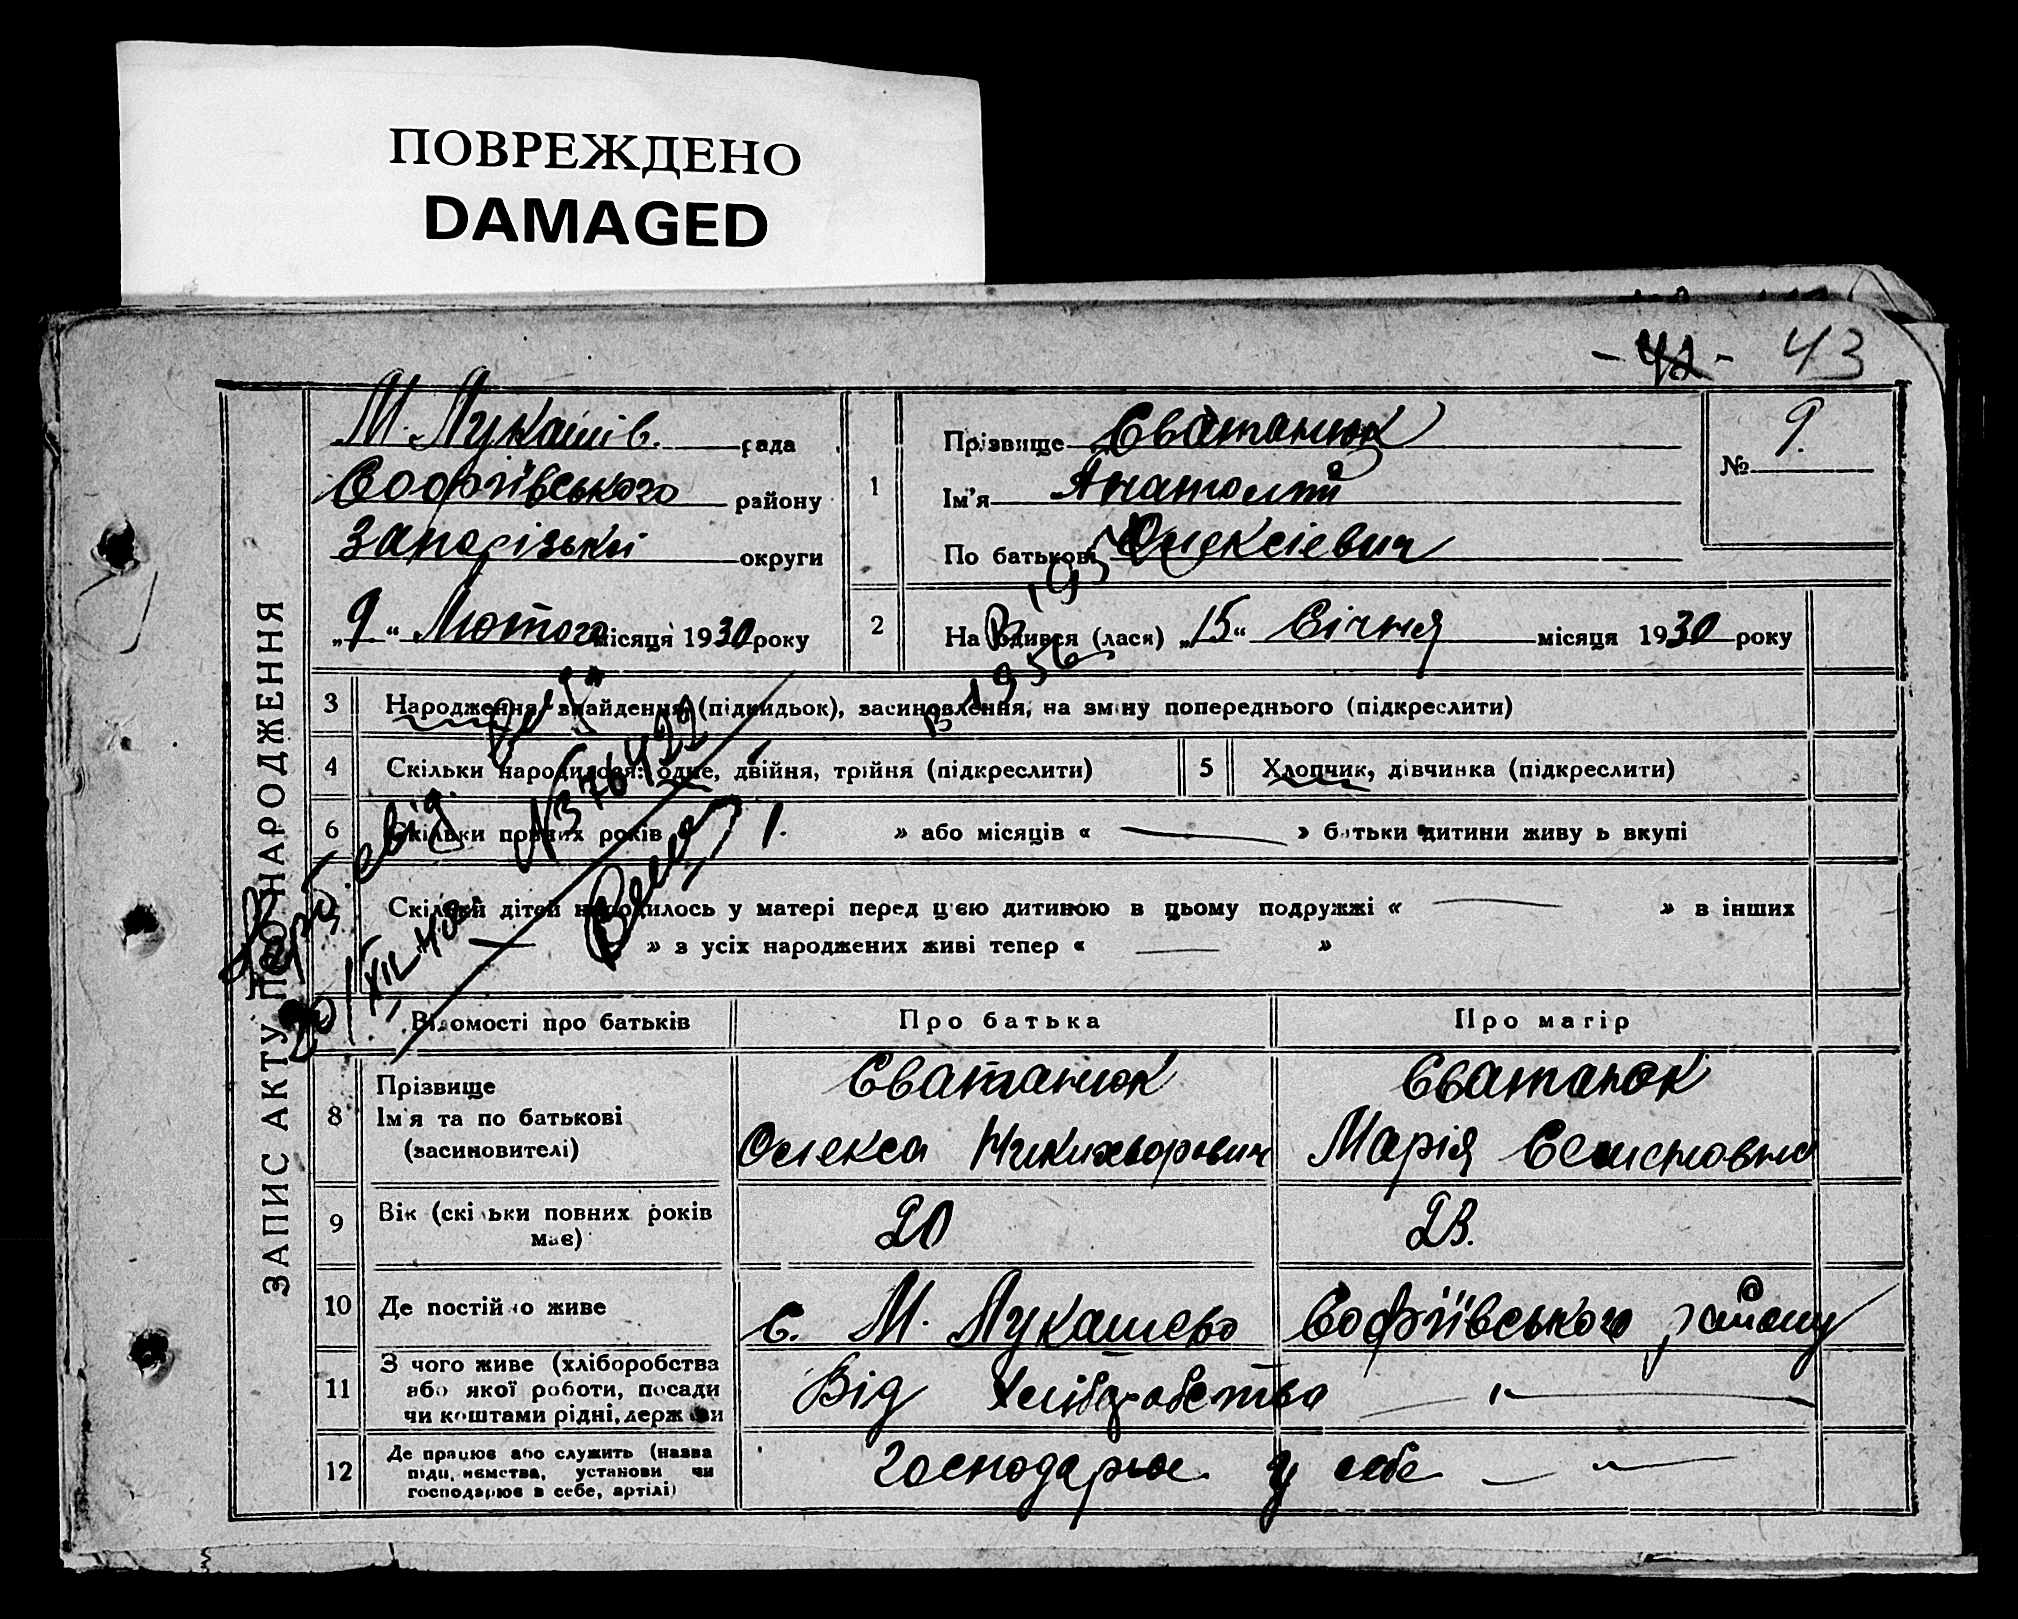 ПОВРЕЖДЕНО
DAMAGED
- 42 - 43
ЗАПИС АКТУ ПРО НАРОДЖЕННЯ
М. Лукашів. рада
Софіївського району
Запорізької округи
„9“ Лютого місяця 1930 року
1
Прізвище Єватанюк
Ім'я Анатолій
По батькові Олексієвич
№ 9.
2
На одився (лася) „15“ Січня місяця 1930 року
3 Народження, знайдення (підкидьок), засиновлення, на зміну попереднього (підкреслити)
в 1956
4 Скільки народилося: одне, двійня, трійня (підкреслити)
5 Хлопчик, дівчинка (підкреслити)
№ 376422
6 Скільки повних років 1. » або місяців « — » батьки дитини живуть вкупі
Скільки дітей народилось у матері перед цією дитиною в цьому подружжі « — » в інших
— » з усіх народжених живі тепер « — »
Відомості про батьків Про батька Про матір
8 Прізвище
Ім'я та по батькові
(засиновителі)
Єватанюк
Олекса Никихворович
Єватанюк
Марія
9 Вік (скільки повних років
має)
20 23.
10 Де постійно живе с. М. Лукашево Софіївського району
11 З чого живе (хліборобства
або якої роботи, посади
чи коштами рідні, держави
Від хліборобства — —
12 Де працює або служить (назва
підприємства, установи чи
господарює в себе, артілі)
Господарює у себе — —